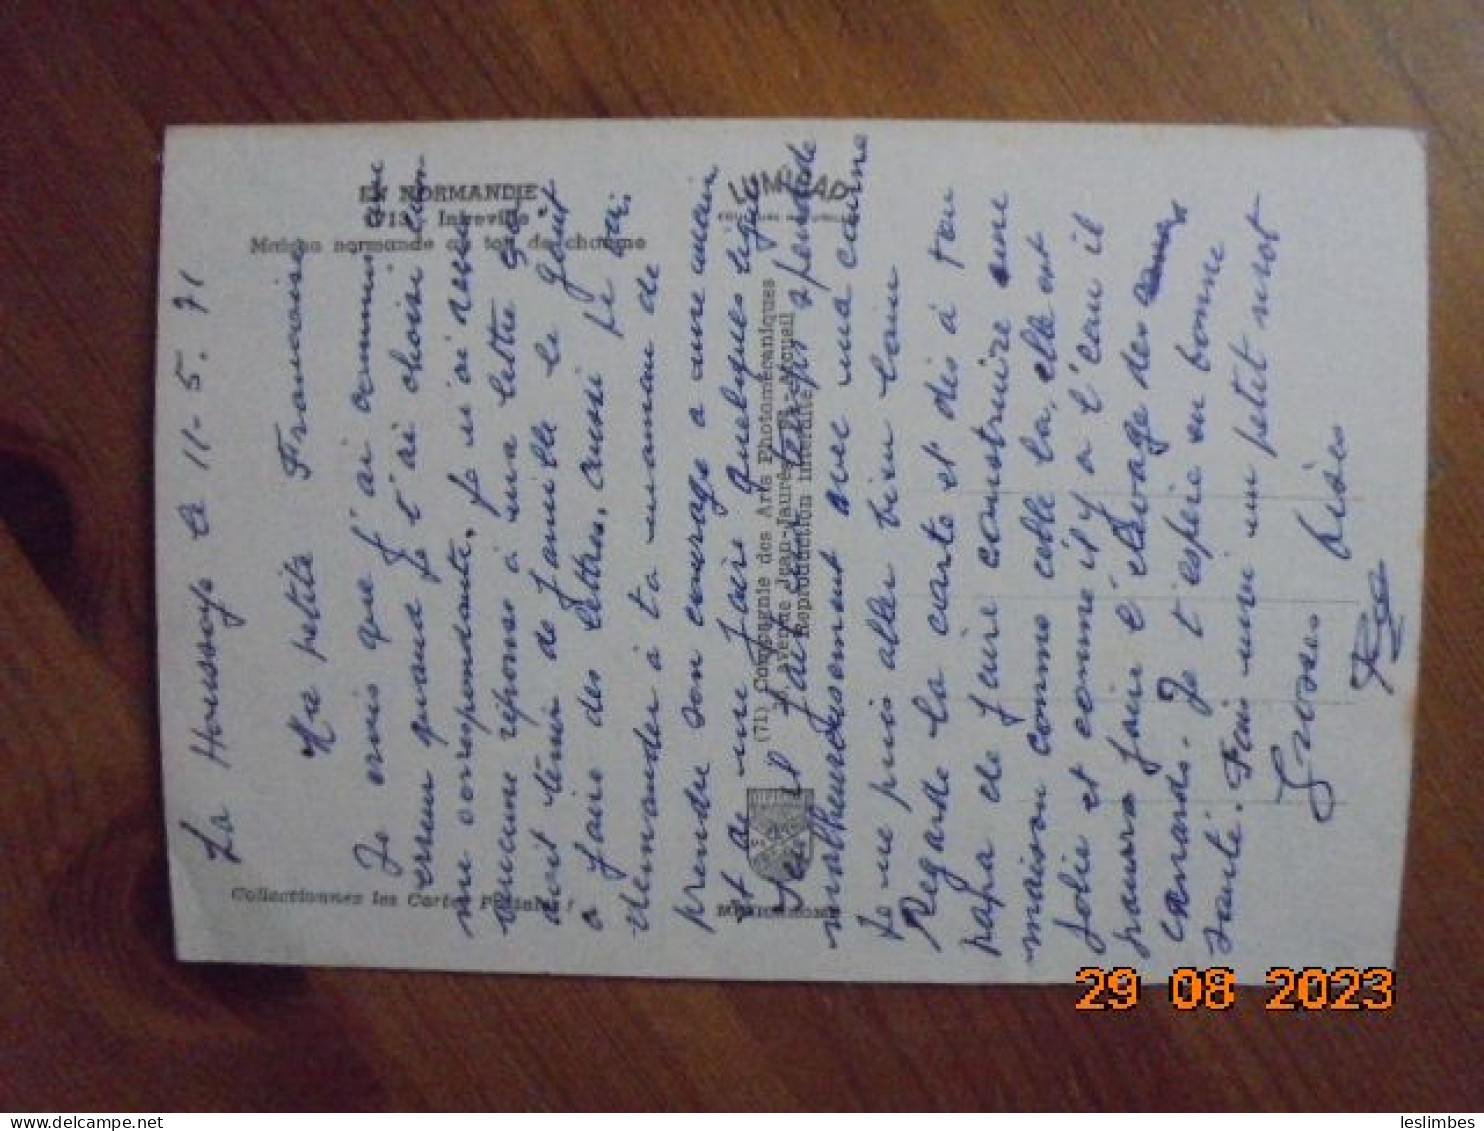 La Houssaye le 11-5.71
Ma petite Françoise
Je crois que j'ai commis une
erreur quand je t'ai choisi com-
me correspondante. Je n'ai reçu
aucune réponse à ma lettre
doit tenir de famille le goût
a faire des lettres, aussi je
demander à ta maman de
prendre son courage a une main
et de me faire quelques lignes
il fait un temps splendide
malheureusement avec ma canne
je ne puis aller bien loin
Regarde la carte et dis à ton
papa de faire construire une
maison comme celle la, elle est
jolie et comme il y a l'eau il
pourra faire l'élevage des
canards. Je t'espère en bonne
santé. Fais moi un petit mot
Grosses bises
EN NORMANDIE
Maison normande au toit de chaume
Collectionnez les Cartes Postales !
LUMICAP
(71) Compagnie des Arts Photomécaniques
avenue Jean-Jaurès
Reproduction interdite
29 08 2023
leslimbes